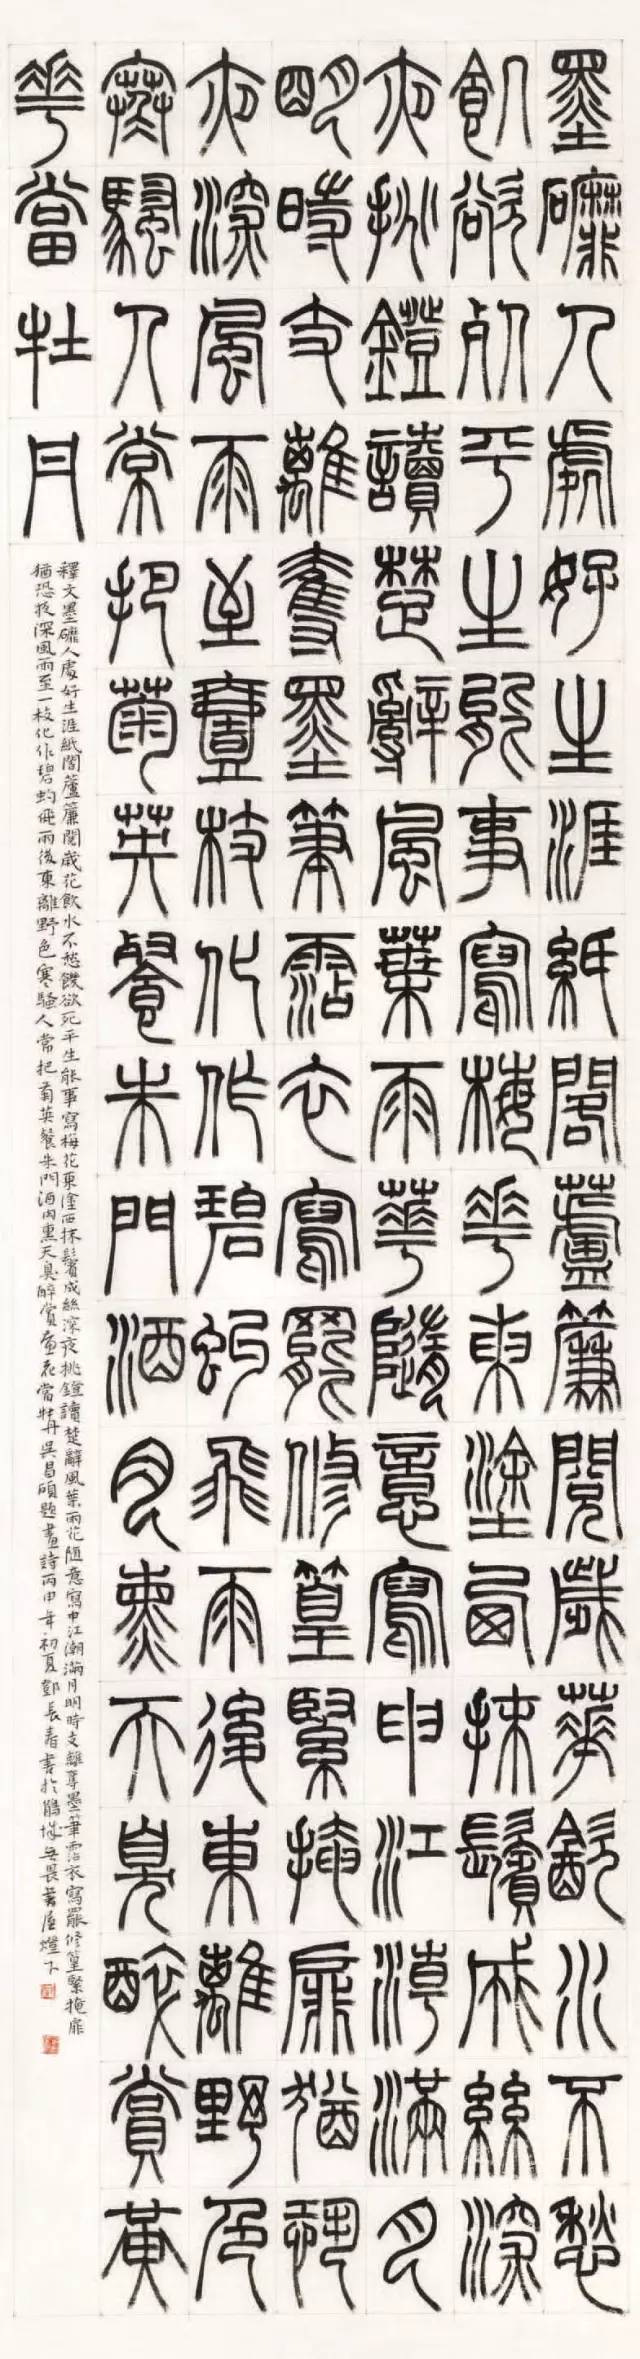 墨䃺人處好生涯紙閣蘆簾閱歲華飲水不愁
飢欲死平生能事寫梅華東塗西抹鬢成絲深
夜挑鐙讀楚辭風葉雨華隨意寫申江潮滿月
明時支離奪墨筆霑衣寫罷修篁緊掩扉猶恐
夜深風雨至壹枝化作碧虯飛雨後東離野色
寒騷人常把菊英餐朱門酒肉熏天臭醉賞黃
華當牡丹
釋文墨礳人處好生涯紙閣蘆簾閱歲花飲水不愁饑欲死平生能事寫梅花東塗西抹鬢成絲深夜挑鐙讀楚辭風葉雨花隨意寫申江潮滿月明時支離奪墨筆霑衣寫罷修篁緊掩扉
猶恐夜深風雨至一枝化作碧虯飛雨後東離野色寒騷人常把菊英餐朱門酒肉熏天臭醉賞黃花當牡丹吳昌碩題畫詩丙申年初夏鄧長春書於鵬城無畏書屋燈下